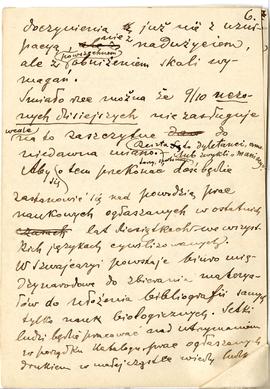 6.
doczynienia już nie z uzur-
pacyą, nie z nadużyciem,
powszechnem
ale z obniżeniem skali wy-
magań.
Śmiało rzec można że 9/10 uczo-
nych dzisiejszych nie zasługuje
wcale
na to zaszczytne do
niedawna miano.
Aby o tem przekonać dość będzie
się
zastanowić się nad powodzią prac
naukowych ogłaszanych w ostatnich
lat dziesiątkach we wszyst-
kich językach cywilizowanych.
W Szwajcaryi powstaje biuro mię-
dzynarodowe do zbierania materya-
łów do ułożenia bibliografii samych
tylko nauk biologicznych. Setki
ludzi będzie pracować nad utrzymaniem
w porządku katalogu prac ogłaszanych
drukiem w małej cząstce wiedzy ludz